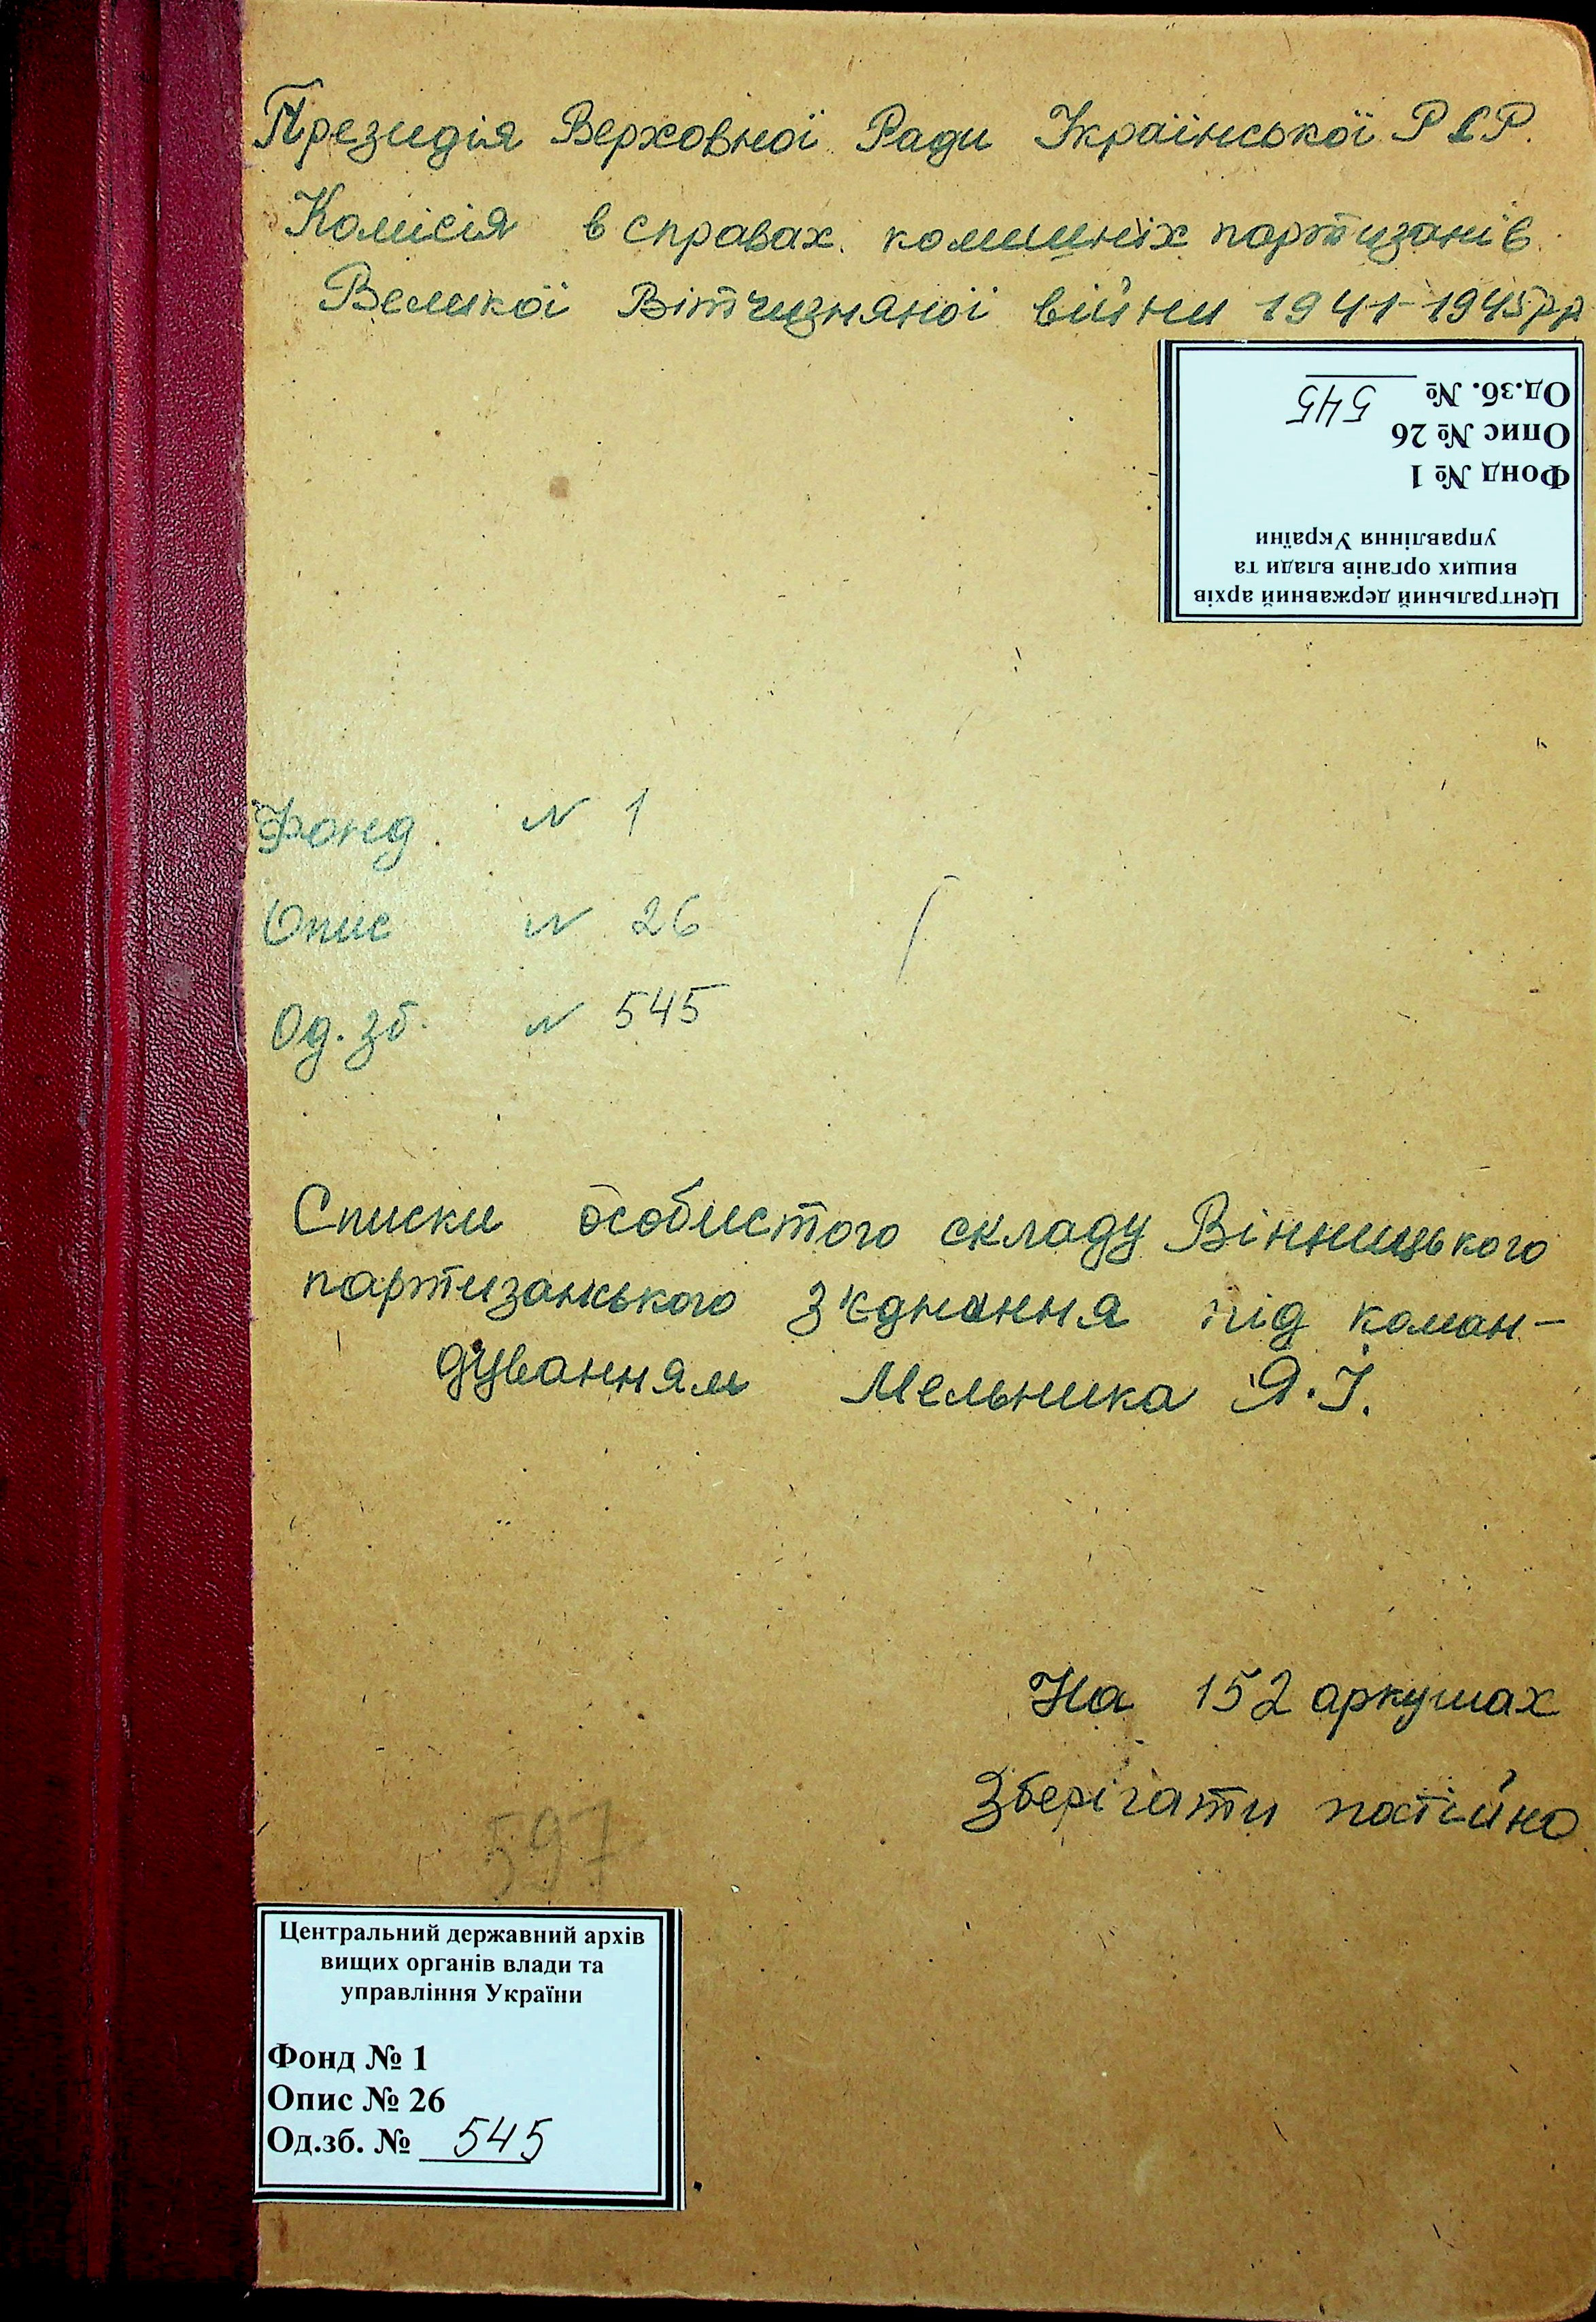 Президія Верховної Ради Української РСР.
Комісія в справах колишніх партизанів
Великої Вітчизняної війни 1941-1945рр
Центральний державний архів
вищих органів влади та
управління України
Фонд № 1
Опис № 26
Од.зб. № 545
Фонд. N 1
Опис N 26
Од. зб. N 545
Списки особистого складу Вінницького
партизанського з'єднання під коман-
дуванням Мельника Я.І.
На 152 аркушах
Зберігати постійно
597
Центральний державний архів
вищих органів влади та
управління України
Фонд № 1
Опис № 26
Од.зб. № 545